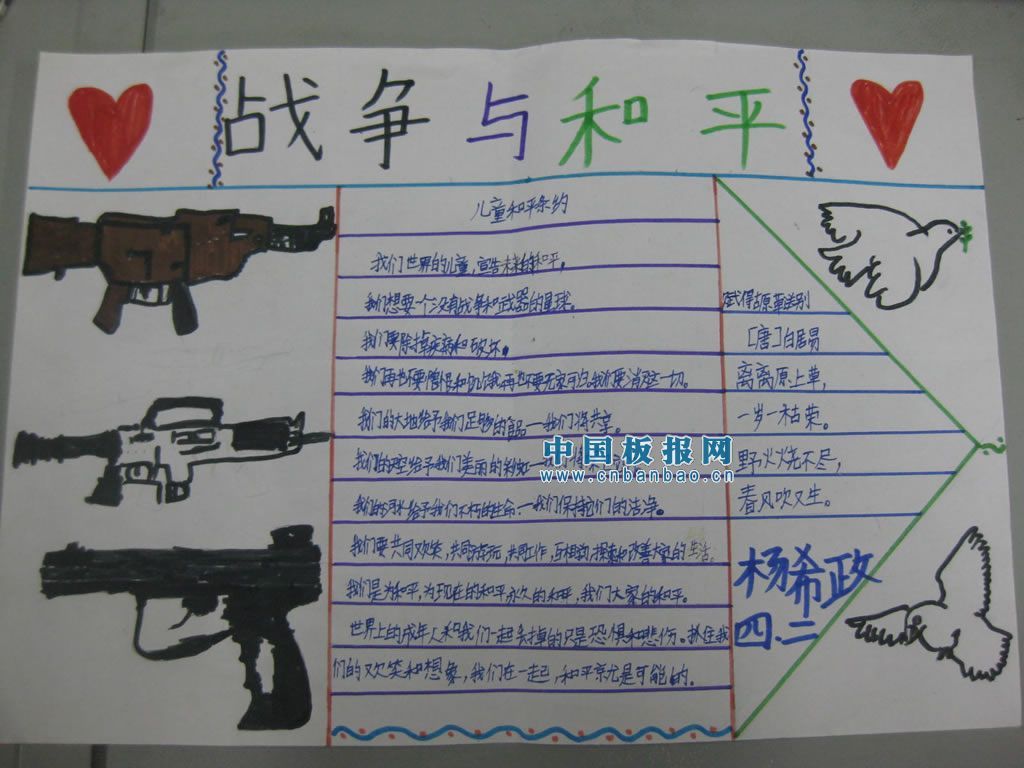 战争与和平
儿童和平条约
我们世界的儿童,宣告未来的和平。
我们想要一个没有战争和武器的星球。
我们要除掉疾病和破坏。
我们再也不要憎恨和饥饿,再也不要无家可归。我们要消除这一切。
我们的大地给予我们足够的食品一我们将共享。
我们的天空给予我们美丽的彩虹一我们将
我们的河水给予我们不朽的生命一我们保持它们的洁净。
我们要共同欢笑,共同游玩,共同工作,互相 探索和改善大家的生活。
我们是为和平,为现在的和平,永久的和平,我们大家的和平。
世界上的成年人和我们一起 丢掉的只是恐惧和悲伤。抓住我
们的欢笑和想象,我们在一起,和平就是可能的。
赋得古原草送别
[唐]白居易
离离原上草,
一岁一枯荣。
野火烧不尽,
春风吹又生。
杨希政
四.二
中国板报网
www.cnbanbao.cn